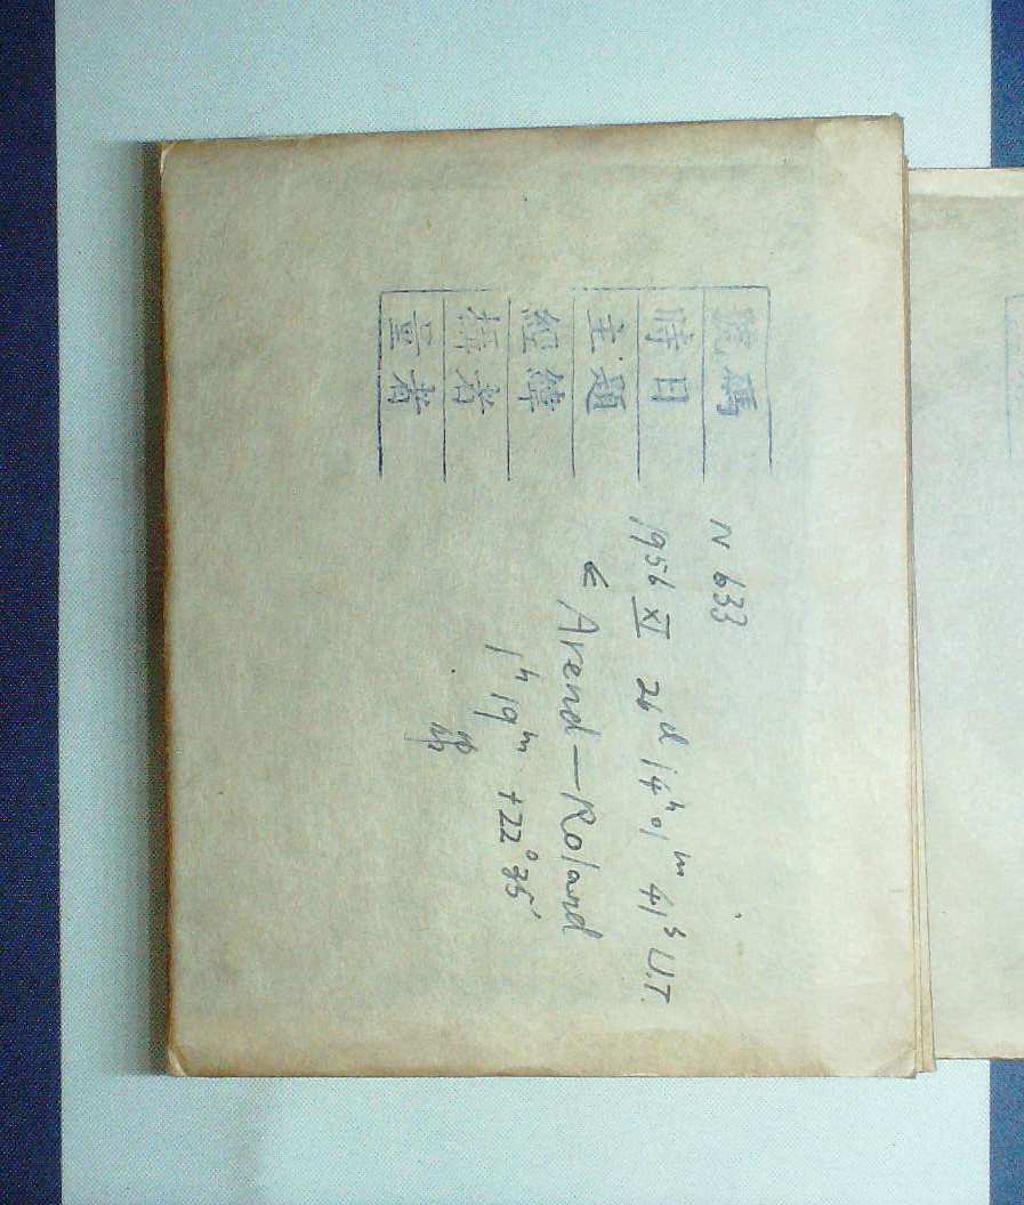 號碼 N 633
時日 1956 XI 26ᵈ 14ʰ 01ᵐ 41ˢ U.T.
主題 Arend—Roland
經緯 1ʰ 19ᵐ +22° 35′
攝者
量者